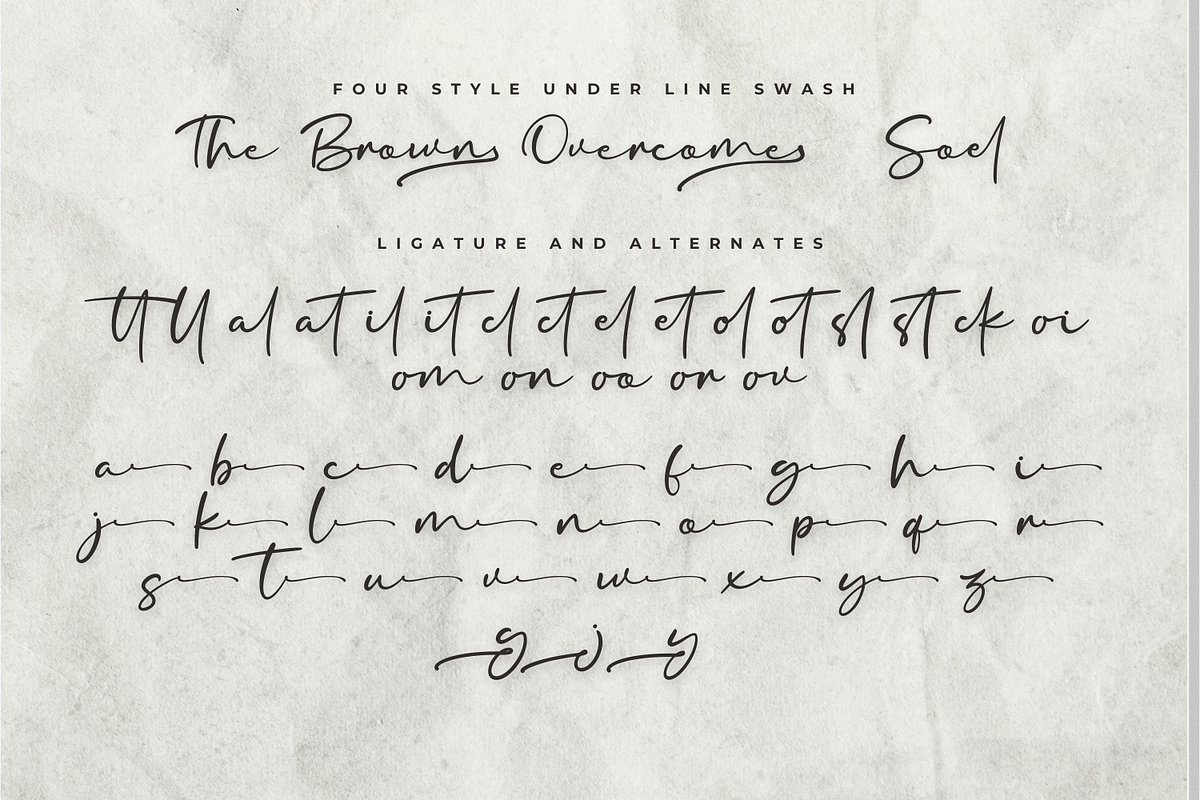 FOUR STYLE UNDER LINE SWASH
The Browns Overcomes Soel
LIGATURE AND ALTERNATES
tt ll al at il it cl ct el et ol ot sl st ck oi
om on oo or ov
a b c d e f g h i
j k l m n o p q r
s t u v w x y z
g j y